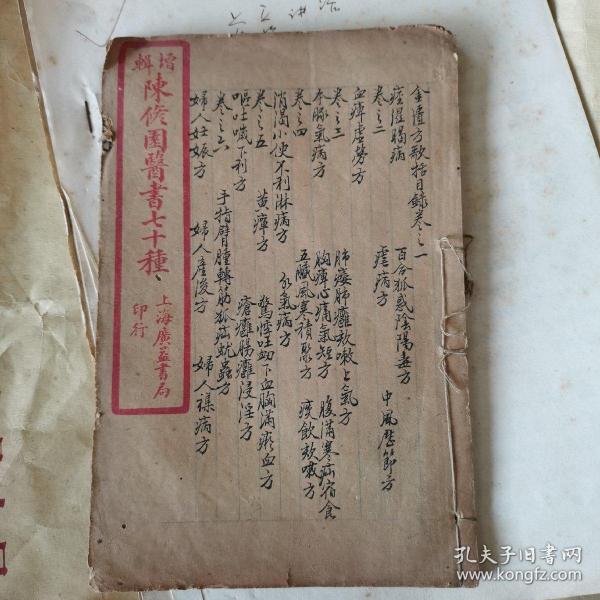 金匱方歌括目錄卷之一
痙濕暍病　百合狐惑陰陽毒方
卷之二　瘧病方　中風歷節方
血痺虛勞方
卷之三　肺痿肺癰欬嗽上氣方
奔豚氣病方　胸痺心痛氣短方　腹滿寒疝宿食
卷之四　五臟風寒積聚方　痰飲欬嗽方
消渴小便不利淋病方　水氣病方
卷之五　黃癉方　驚悸吐衄下血胸滿瘀血方
嘔吐噦下利方　瘡癰腸癰浸淫方
卷之六　手指臂腫轉筋狐疝蚘蟲方
婦人妊娠方　婦人產後方　婦人襍病方
增輯
陳修園醫書七十種
上海廣益書局
印行
孔夫子旧书网
www.kongfz.com